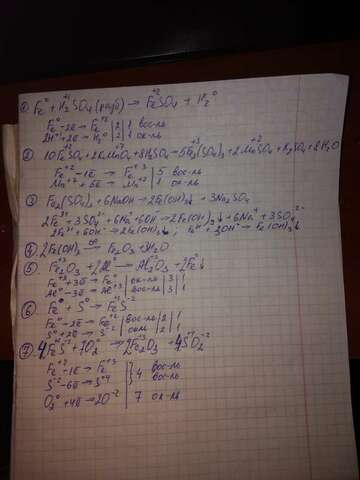 ① Fe⁰ + H₂⁺¹SO₄(разб) → Fe⁺²SO₄ + H₂⁰
Fe⁰ - 2e → Fe⁺² | 2 | 1 вос-ль
2H⁺¹ + 2e → H₂⁰ | 2 | 1 ок-ль
② 10FeSO₄ + 2KMnO₄ + 8H₂SO₄ → 5Fe₂⁺³(SO₄)₃ + 2Mn⁺²SO₄ + K₂SO₄ + 8H₂O
Fe⁺² - 1e → Fe⁺³ | 5 вос-ль
Mn⁺⁷ + 5e → Mn⁺² | 1 ок-ль
③ Fe₂(SO₄)₃ + 6NaOH → 2Fe(OH)₃↓ + 3Na₂SO₄
2Fe³⁺ + 3SO₄²⁻ + 6Na⁺ + 6OH⁻ → 2Fe(OH)₃↓ + 6Na⁺ + 3SO₄²⁻
2Fe³⁺ + 6OH⁻ → 2Fe(OH)₃↓ ; Fe³⁺ + 3OH⁻ → Fe(OH)₃↓
④ 2Fe(OH)₃ → Fe₂O₃ + 3H₂O
⑤ Fe₂⁺³O₃ + 2Al⁰ → Al₂⁺³O₃ + 2Fe⁰↓
Fe⁺³ + 3e → Fe⁰ | ок-ль | 3 | 1
Al⁰ - 3e → Al⁺³ | вос-ль | 3 | 1
⑥ Fe⁰ + S⁰ → Fe⁺²S⁻²
Fe⁰ - 2e → Fe⁺² | вос-ль | 2 | 1
S⁰ + 2e → S⁻² | ок-ль | 2 | 1
⑦ 4Fe⁺²S⁻² + 7O₂⁰ → 2Fe₂⁺³O₃ + 4S⁺⁴O₂⁻²
Fe⁺² - 1e → Fe⁺³ } 4 вос-ль
S⁻² - 6e → S⁺⁴ вос-ль
O₂⁰ + 4e → 2O⁻² | 7 ок-ль